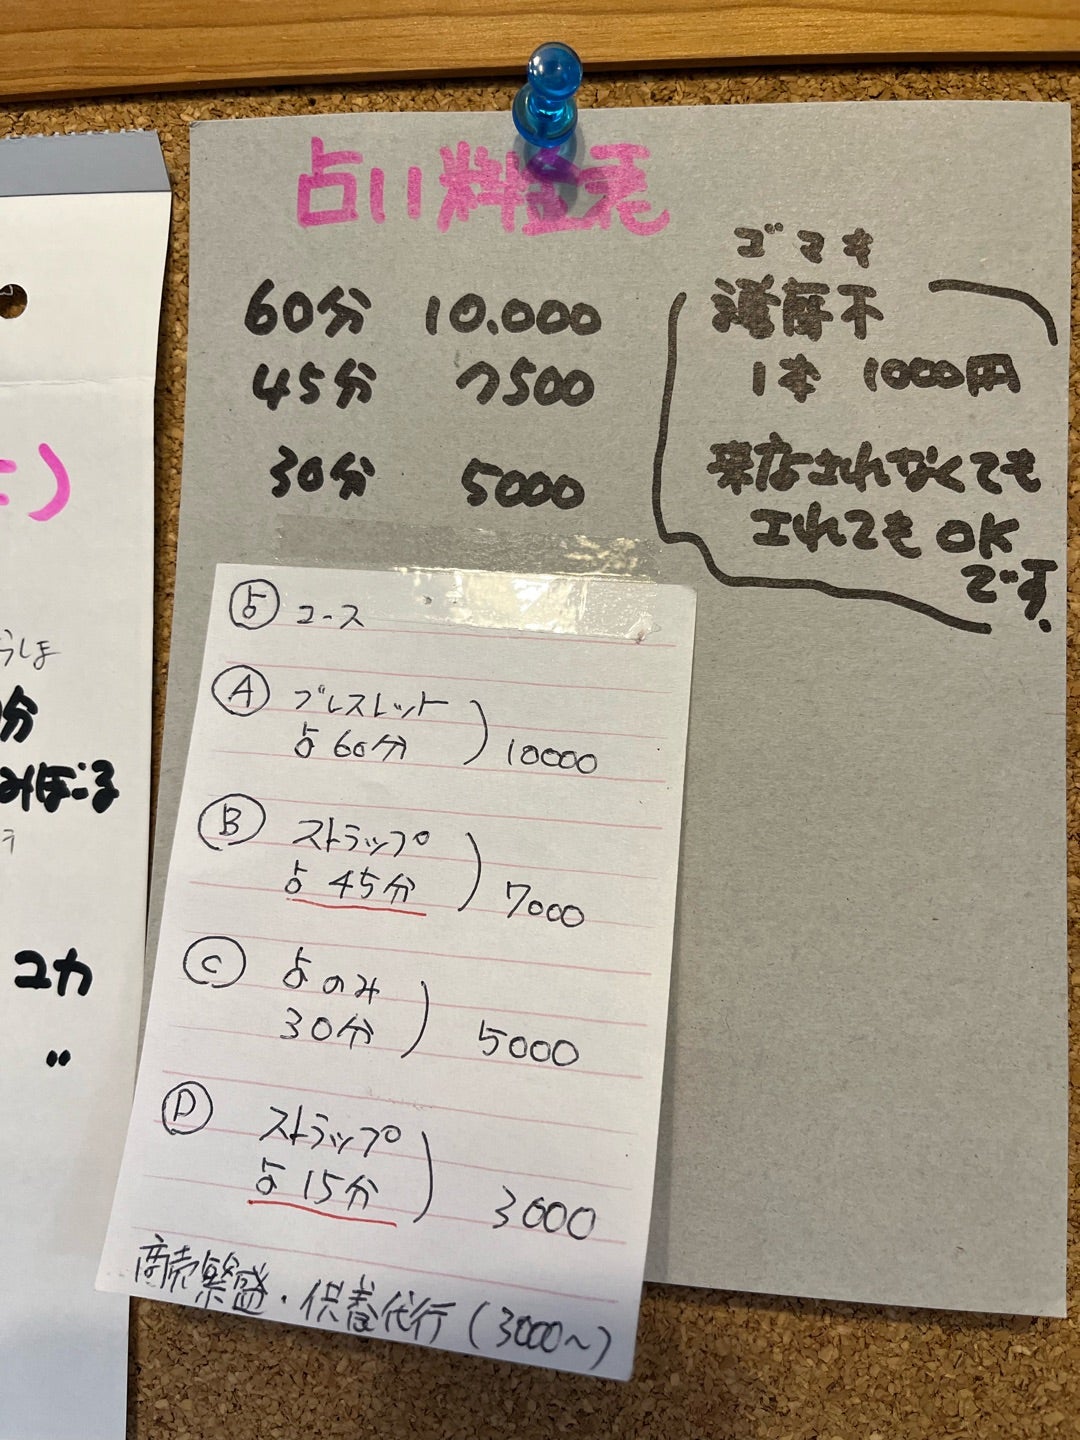 占い料金表
60分 10.000
45分 7500
30分 5000
ゴマキ
護摩木
1本 1000円
来店されなくても
エれてもOK
です.
占 コース
A ブレスレット
占60分) 10000
B ストラップ
占 45分) 7000
C 占のみ
30分) 5000
D ストラップ
占 15分) 3000
商売繁盛・供養代行(3000〜)
うしま
分
みぼこる
ユカ
〃